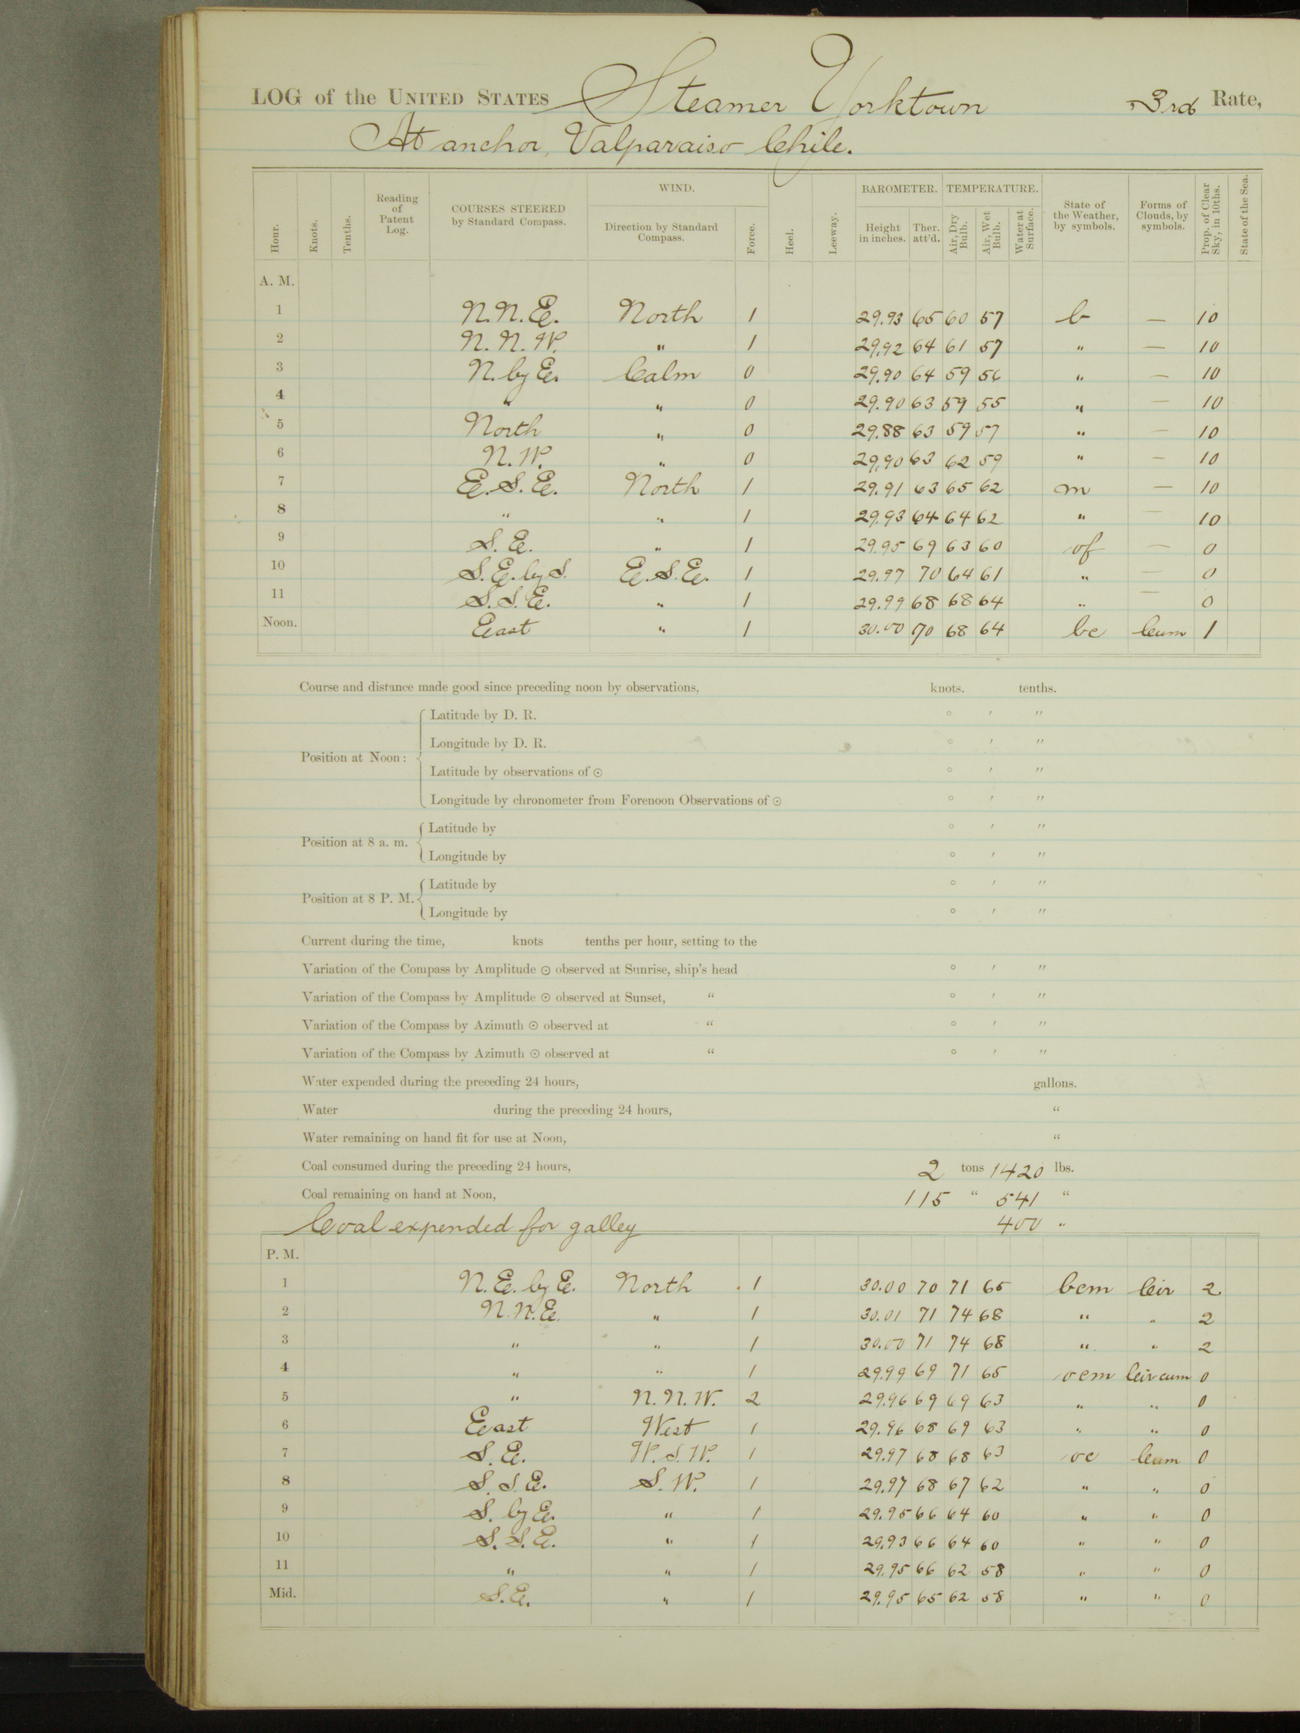 LOG of the UNITED STATES Steamer Yorktown 3rd Rate,
At anchor, Valparaiso Chile.
Hour. Knots. Tenths. Reading of Patent Log. COURSES STEERED by Standard Compass. WIND. Direction by Standard Compass. Force. Heel. Leeway. BAROMETER. Height in inches. Ther. att'd. TEMPERATURE. Air, Dry Bulb. Air, Wet Bulb. Water at Surface. State of the Weather, by symbols. Forms of Clouds, by symbols. Prop. of Clear Sky, in 10ths. State of the Sea.
A. M.
1 N.N.E. North 1 29.93 65 60 57 b — 10
2 N.N.W. " 1 29.92 64 61 57 " — 10
3 N. by E. Calm 0 29.90 64 59 56 " — 10
4 " " 0 29.90 63 59 55 " — 10
5 North " 0 29.88 63 59 57 " — 10
6 N.W. " 0 29.90 63 62 59 " — 10
7 E.S.E. North 1 29.91 63 65 62 m — 10
8 " " 1 29.93 64 64 62 " — 10
9 S.E. " 1 29.95 69 63 60 of — 0
10 S.E. by S. E.S.E. 1 29.97 70 64 61 " — 0
11 S.S.E. " 1 29.99 68 68 64 " — 0
Noon. East " 1 30.00 70 68 64 bc Cum 1
Course and distance made good since preceding noon by observations, knots. tenths.
Position at Noon: Latitude by D. R. ° ′ ″
Longitude by D. R. ° ′ ″
Latitude by observations of ☉ ° ′ ″
Longitude by chronometer from Forenoon Observations of ☉ ° ′ ″
Position at 8 a. m. Latitude by ° ′ ″
Longitude by ° ′ ″
Position at 8 P. M. Latitude by ° ′ ″
Longitude by ° ′ ″
Current during the time, knots tenths per hour, setting to the
Variation of the Compass by Amplitude ☉ observed at Sunrise, ship's head ° ′ ″
Variation of the Compass by Amplitude ☉ observed at Sunset, " ° ′ ″
Variation of the Compass by Azimuth ☉ observed at " ° ′ ″
Variation of the Compass by Azimuth ☉ observed at " ° ′ ″
Water expended during the preceding 24 hours, gallons.
Water during the preceding 24 hours, "
Water remaining on hand fit for use at Noon, "
Coal consumed during the preceding 24 hours, 2 tons 1420 lbs.
Coal remaining on hand at Noon, 115 " 541 "
Coal expended for galley 400 "
P. M.
1 N.E. by E. North 1 30.00 70 71 65 bcm Cir 2
2 N.N.E. " 1 30.01 71 74 68 " " 2
3 " " 1 30.00 71 74 68 " " 2
4 " " 1 29.99 69 71 65 ocm Cir cum 0
5 " N.N.W. 2 29.96 69 69 63 " " 0
6 East West 1 29.96 68 69 63 " " 0
7 S.E. W.S.W. 1 29.97 68 68 63 oc Cum 0
8 S.S.E. S.W. 1 29.97 68 67 62 " " 0
9 S. by E. " 1 29.95 66 64 60 " " 0
10 S.S.E. " 1 29.93 66 64 60 " " 0
11 " " 1 29.95 66 62 58 " " 0
Mid. S.E. " 1 29.95 65 62 58 " " 0